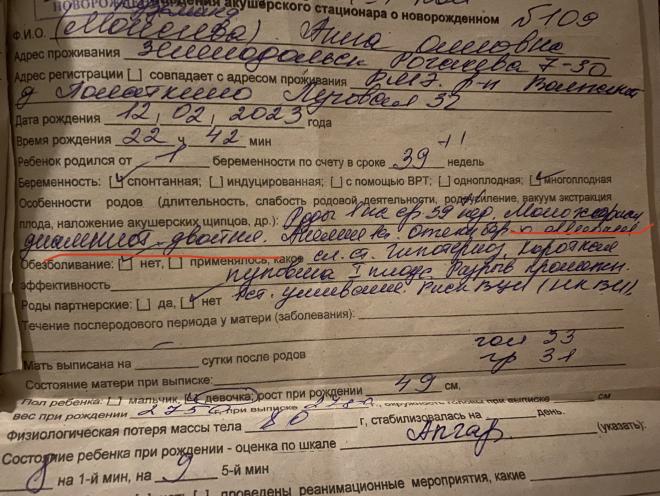 НОВОРОЖДЕН ведения акушерского стационара о новорожденном №109
Ф.И.О. Анна
Адрес проживания Зеленодольск Рогачева 7-30
Адрес регистрации [ ] совпадает с адресом проживания РМЭ, р-н Волжский
д Поматкино Луговая 32
Дата рождения 12, 02, 2023 года
Время рождения 22 ч 42 мин
Ребенок родился от 1 беременности по счету в сроке 39+1 недель
Беременность: [ ] спонтанная; [ ] индуцированная; [ ] с помощью ВРТ; [ ] одноплодная; [ ] многоплодная
Особенности родов (длительность, слабость родовой деятельности, родоусиление, вакуум экстракция
плода, наложение акушерских щипцов, др.): Роды I на ср 39 нед. Монохориал
диамниот. двойня. Анемия Iст. Отеки бер.
Обезболивание: [ ] нет, [ ] применялось, какое Гипотериоз, короткая
эффективность пуповина I плода. Разрыв промежн.
Роды партнерские: [ ] да, [ ] нет Iст. ушивание. Риск ВУИ
Течение послеродового периода у матери (заболевания):
гол 33
Мать выписана на сутки после родов гр 31
Состояние матери при выписке:
Пол ребенка: [ ] мальчик, [ ] девочка, рост при рождении 49 см,
вес при рождении при выписке г., окружность см
Физиологическая потеря массы тела г, стабилизовалась на день.
Состояние ребенка при рождении - оценка по шкале Апгар (указать):
8 на 1-й мин, на 9 5-й мин
проведены реанимационные мероприятия, какие